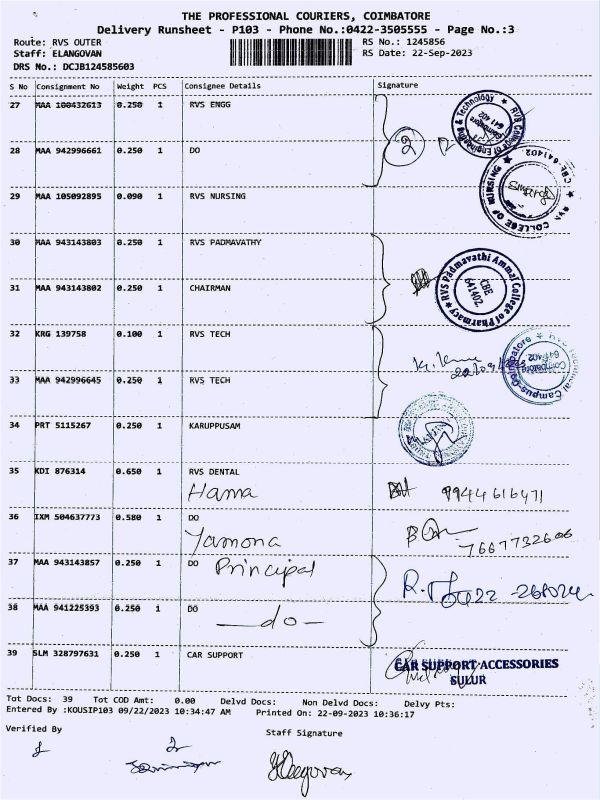 THE PROFESSIONAL COURIERS, COIMBATORE
Delivery Runsheet - P103 - Phone No.:0422-3505555 - Page No.:3
Route: RVS OUTER RS No.: 1245856
Staff: ELANGOVAN RS Date: 22-Sep-2023
DRS No.: DCJB124585603
S No Consignment No Weight PCS Consignee Details Signature
27 MAA 100432613 0.250 1 RVS ENGG
28 MAA 942996661 0.250 1 DO
2
29 MAA 105092895 0.090 1 RVS NURSING
30 MAA 943143803 0.250 1 RVS PADMAVATHY
31 MAA 943143802 0.250 1 CHAIRMAN
RVS Padmavathi Ammal College of Pharmacy
CBE
641402
32 KRG 139758 0.100 1 RVS TECH
33 MAA 942996645 0.250 1 RVS TECH
34 PRT 5115267 0.250 1 KARUPPUSAM
35 KDI 876314 0.650 1 RVS DENTAL
Hama 9944616471
36 IXM 504637773 0.580 1 DO
Yamona 7667732606
37 MAA 943143857 0.250 1 DO
Principal
38 MAA 941225393 0.250 1 DO
—do—
39 SLM 328797631 0.250 1 CAR SUPPORT
CAR SUPPORT ACCESSORIES
SULUR
Tot Docs: 39 Tot COD Amt: 0.00 Delvd Docs: Non Delvd Docs: Delvy Pts:
Entered By :KOUSIP103 09/22/2023 10:34:47 AM Printed On: 22-09-2023 10:36:17
Verified By Staff Signature